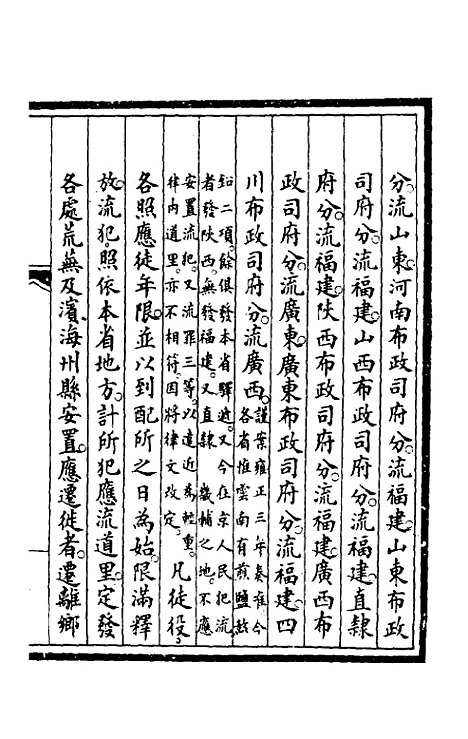 分流山東河南布政司府分流福建山東布政
司府分流福建山西布政司府分流福建直隸
府分流福建陝西布政司府分流福建廣西布
政司府分流廣東廣東布政司府分流福建四
川布政司府分流廣西謹案雍正三年奏准今
各省惟雲南有煎鹽炒
鉛二項餘俱發本省驛遞又今在京人民犯流
者發陝西無發福建又直隸畿輔之地不應
安置流犯又流罪三等以道近為輕重
律内道里亦不相符因將律文改定凡徒役
各照應徒年限並以到配所之日為始限滿釋
放流犯照依本省地方計所犯應流道里定發
各處荒蕪及瀕海州縣安置應遷徙者遷離鄉